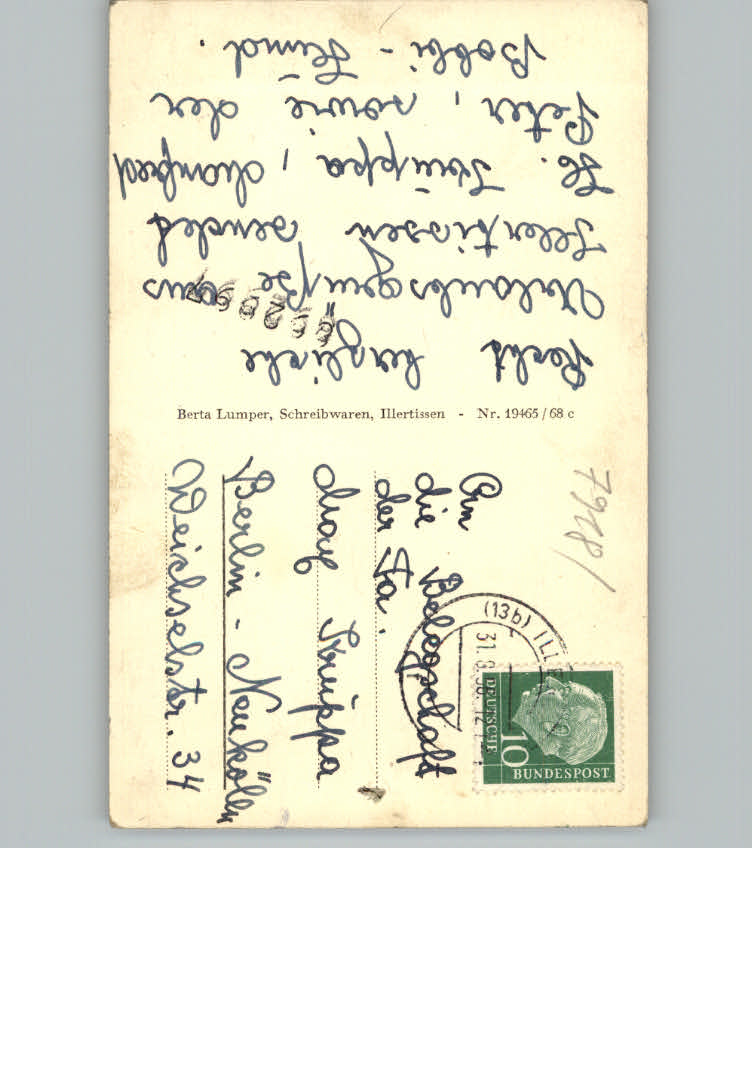 Recht herzliche
Urlaubsgrüße aus
Illertissen sendet
H. Kruppa, Manfred
Peter, sowie der
Bobbi-Hund.
Berta Lumper, Schreibwaren, Illertissen - Nr. 19465/68 c
An
die Belegschaft
der Fa.
Max Kruppa
Berlin-Neukölln
Weichselstr. 34
(13b) ILLE
DEUTSCHE
BUNDESPOST
10